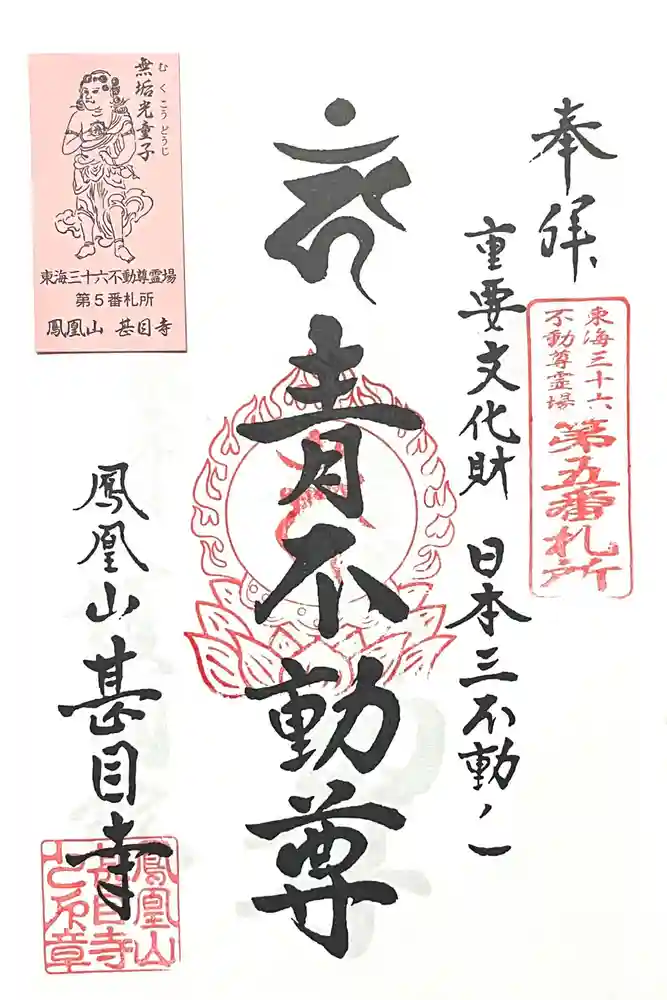 奉拝
東海三十六
不動尊霊場
第五番札所
重要文化財 日本三不動ノ一
青不動尊
鳳凰山 甚目寺
鳳凰山
甚目寺
無垢光童子
むくこうどうじ
東海三十六不動尊霊場
第5番札所
鳳凰山 甚目寺